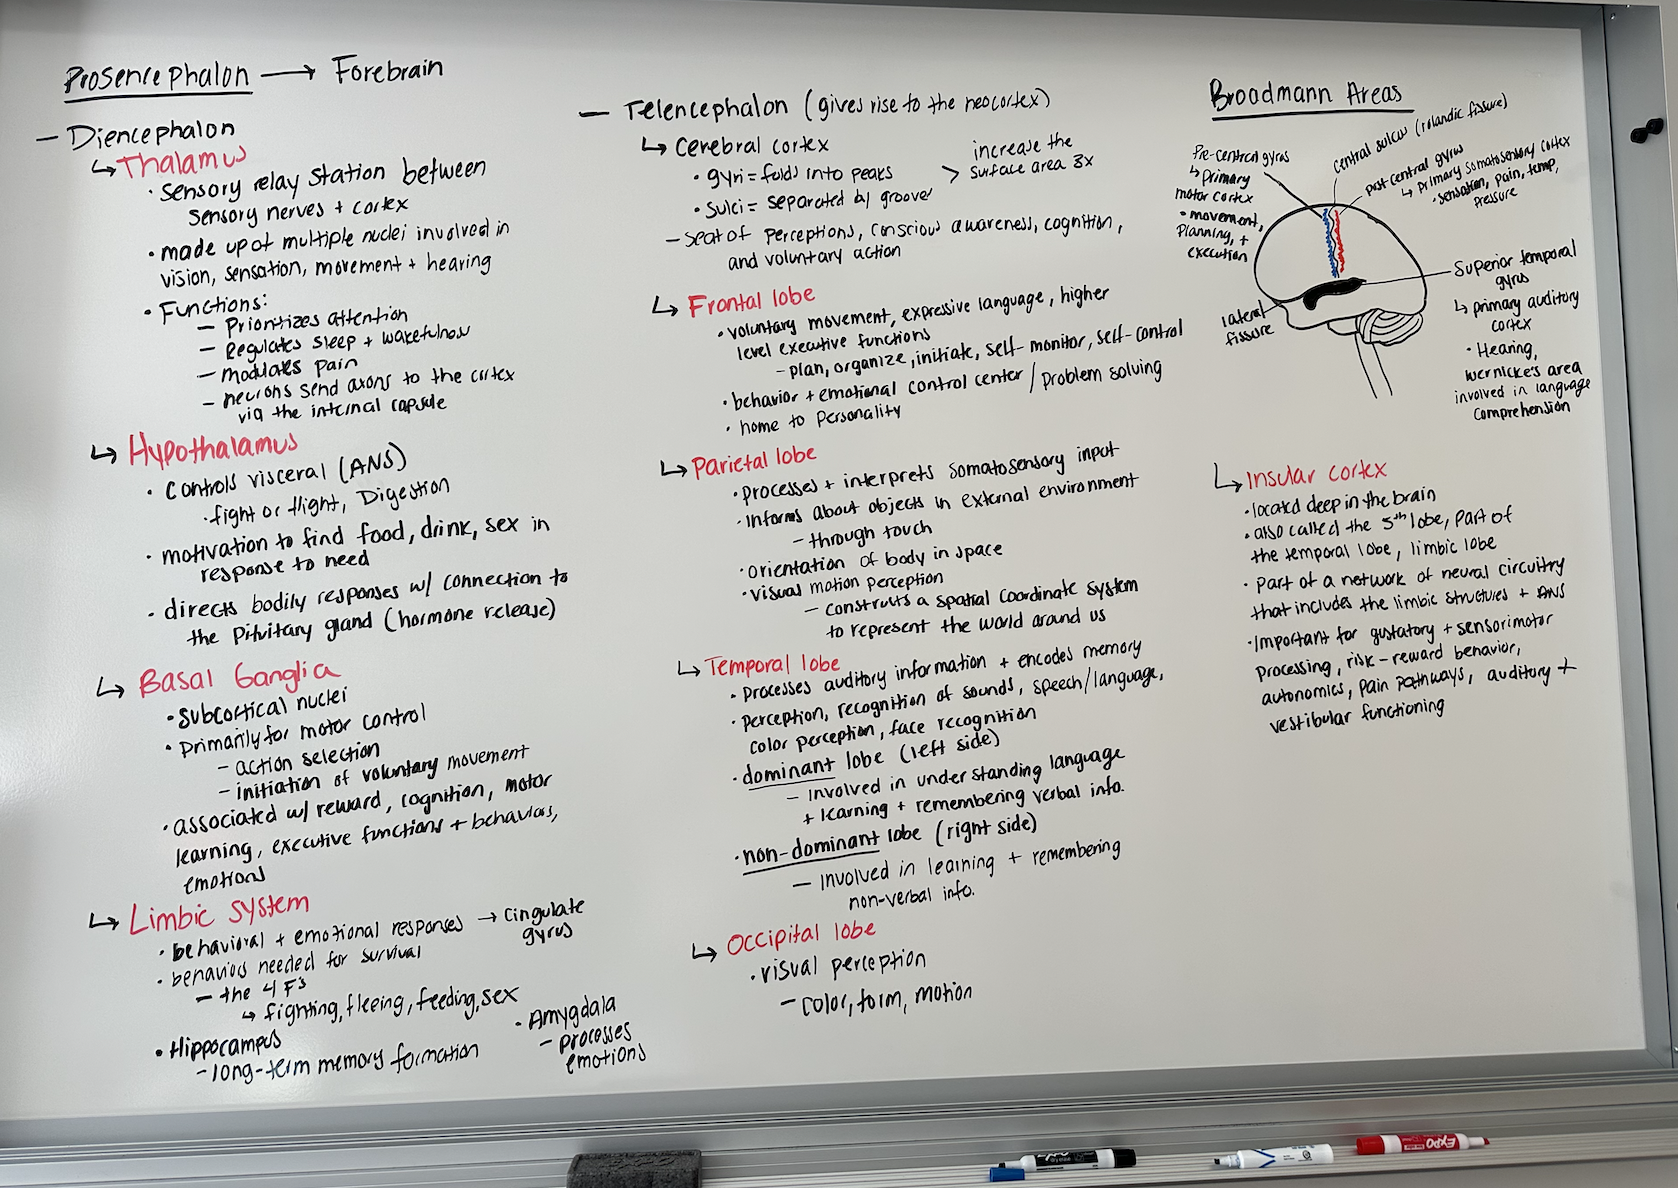 Prosencephalon → Forebrain
— Diencephalon
↳ Thalamus
• sensory relay station between
sensory nerves + cortex
• made up of multiple nuclei involved in
vision, sensation, movement + hearing
• Functions:
— Prioritizes attention
— Regulates sleep + wakefulness
— modulates pain
— neurons send axons to the cortex
via the internal capsule
↳ Hypothalamus
• controls visceral (ANS)
• fight or flight, Digestion
• motivation to find food, drink, sex in
response to need
• directs bodily responses w/ connection to
the pituitary gland (hormone release)
↳ Basal Ganglia
• subcortical nuclei
• primarily for motor control
— action selection
— initiation of voluntary movement
• associated w/ reward, cognition, motor
learning, executive functions + behaviors,
emotions
↳ Limbic system
• behavioral + emotional responses → cingulate
gyrus
• behaviors needed for survival
— the 4 F's
↳ fighting, fleeing, feeding, sex
• Hippocampus
— long-term memory formation
• Amygdala
— processes
emotions
— Telencephalon (gives rise to the neocortex)
↳ cerebral cortex
• gyri = folds into peaks
• sulci = separated by groove
> increase the
surface area 3x
— seat of perceptions, conscious awareness, cognition,
and voluntary action
↳ Frontal lobe
• voluntary movement, expressive language, higher
level executive functions
— plan, organize, initiate, self-monitor, self-control
• behavior + emotional control center / problem solving
• home to personality
↳ Parietal lobe
• processes + interprets somatosensory input
• informs about objects in external environment
— through touch
• orientation of body in space
• visual motion perception
— constructs a spatial coordinate system
to represent the world around us
↳ Temporal lobe
• processes auditory information + encodes memory
• perception, recognition of sounds, speech/language,
color perception, face recognition
• dominant lobe (left side)
— involved in understanding language
+ learning + remembering verbal info.
• non-dominant lobe (right side)
— involved in learning + remembering
non-verbal info.
↳ Occipital lobe
• visual perception
— color, form, motion
Broadmann Areas
Pre-central gyrus
↳ primary
motor cortex
• movement,
planning, +
execution
central sulcus (rolandic fissure)
post central gyrus
↳ primary somatosensory cortex
• sensation, pain, temp,
pressure
lateral
fissure
superior temporal
gyrus
↳ primary auditory
cortex
• Hearing,
wernicke's area
involved in language
comprehension
↳ Insular cortex
• located deep in the brain
• also called the 5th lobe, part of
the temporal lobe, limbic lobe
• part of a network of neural circuitry
that includes the limbic structures + ANS
• Important for gustatory + sensorimotor
processing, risk-reward behavior,
autonomics, pain pathways, auditory +
vestibular functioning
EXPO